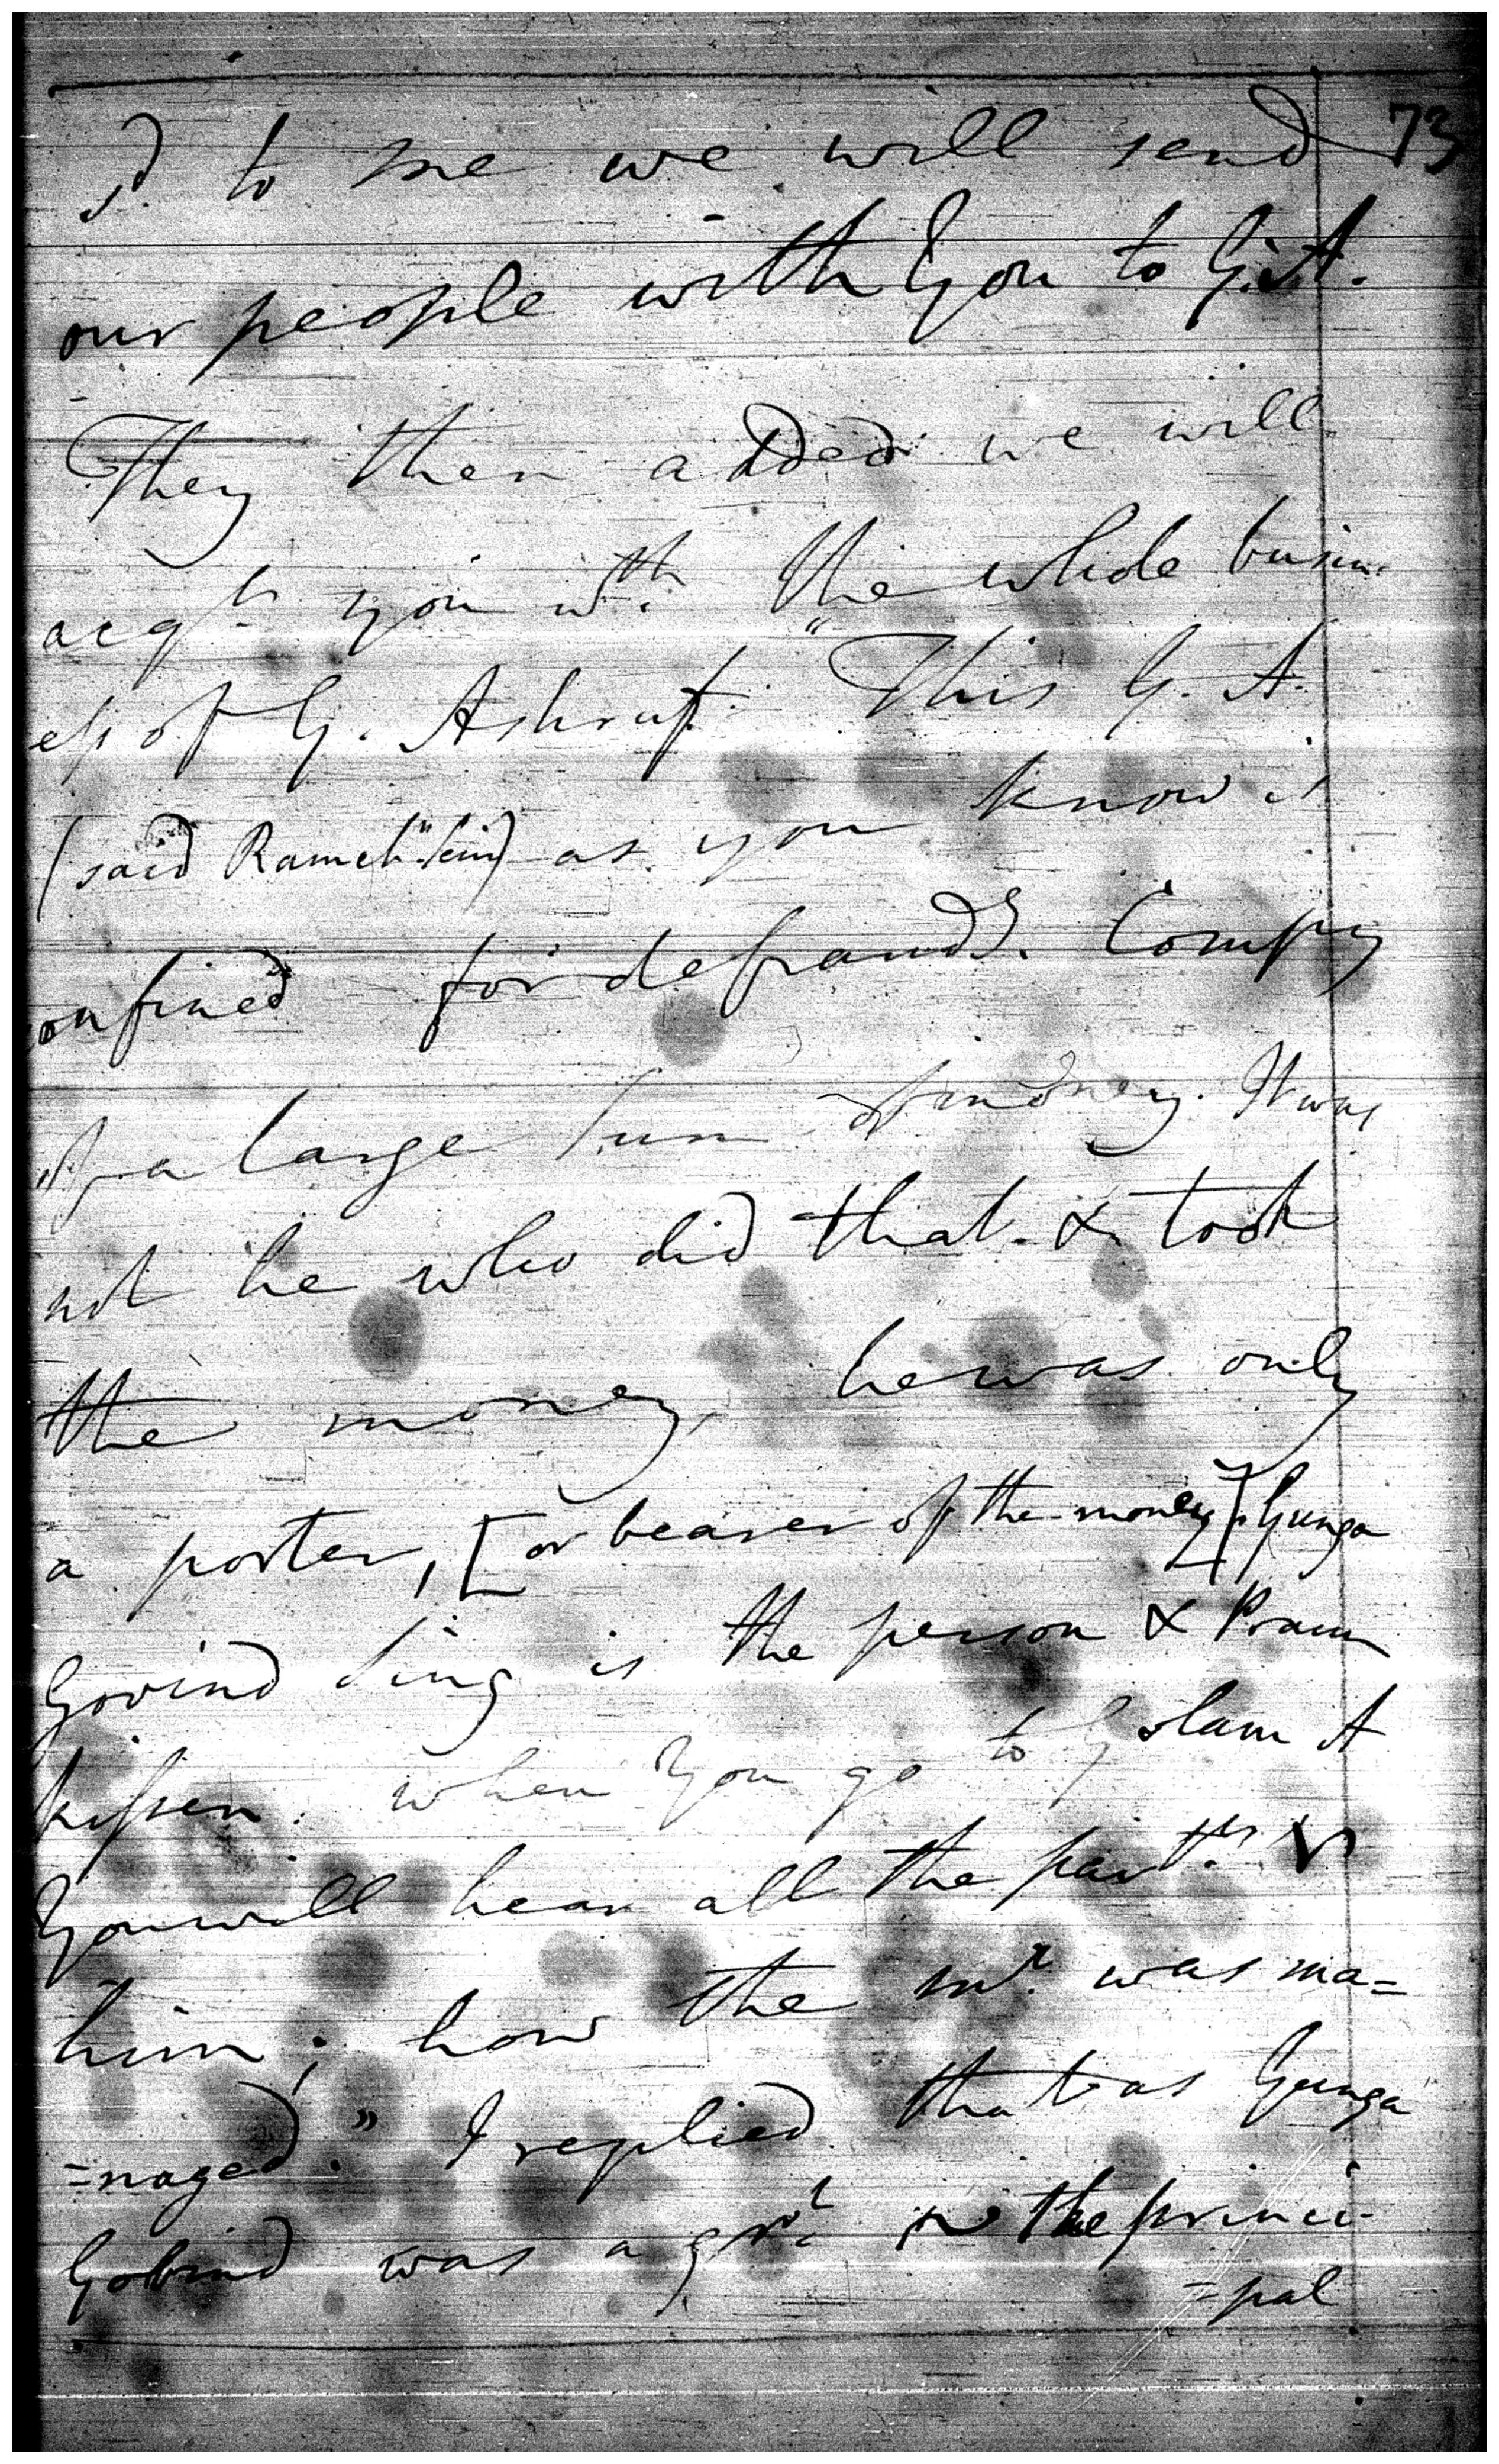 73
sd. to me we will send
our people with You to G. A.
They then added we will
acqt. you wth. the whole busin-
ess of G. Ashruf. "This G. A.
(said Ramch) as you know is
onfined for defraudg. Compy
of a large sum of money. It was
not he who did that & took
the money, he was only
a porter, [or bearer of the money] Gunga
Govind Sing is the person & Pram
kissen. when You go to Golam A
You will hear all the parts.
him; how the mr. was ma=
=naged." I replied that as Gunga
Gobind was a grt. the princi-
=pal